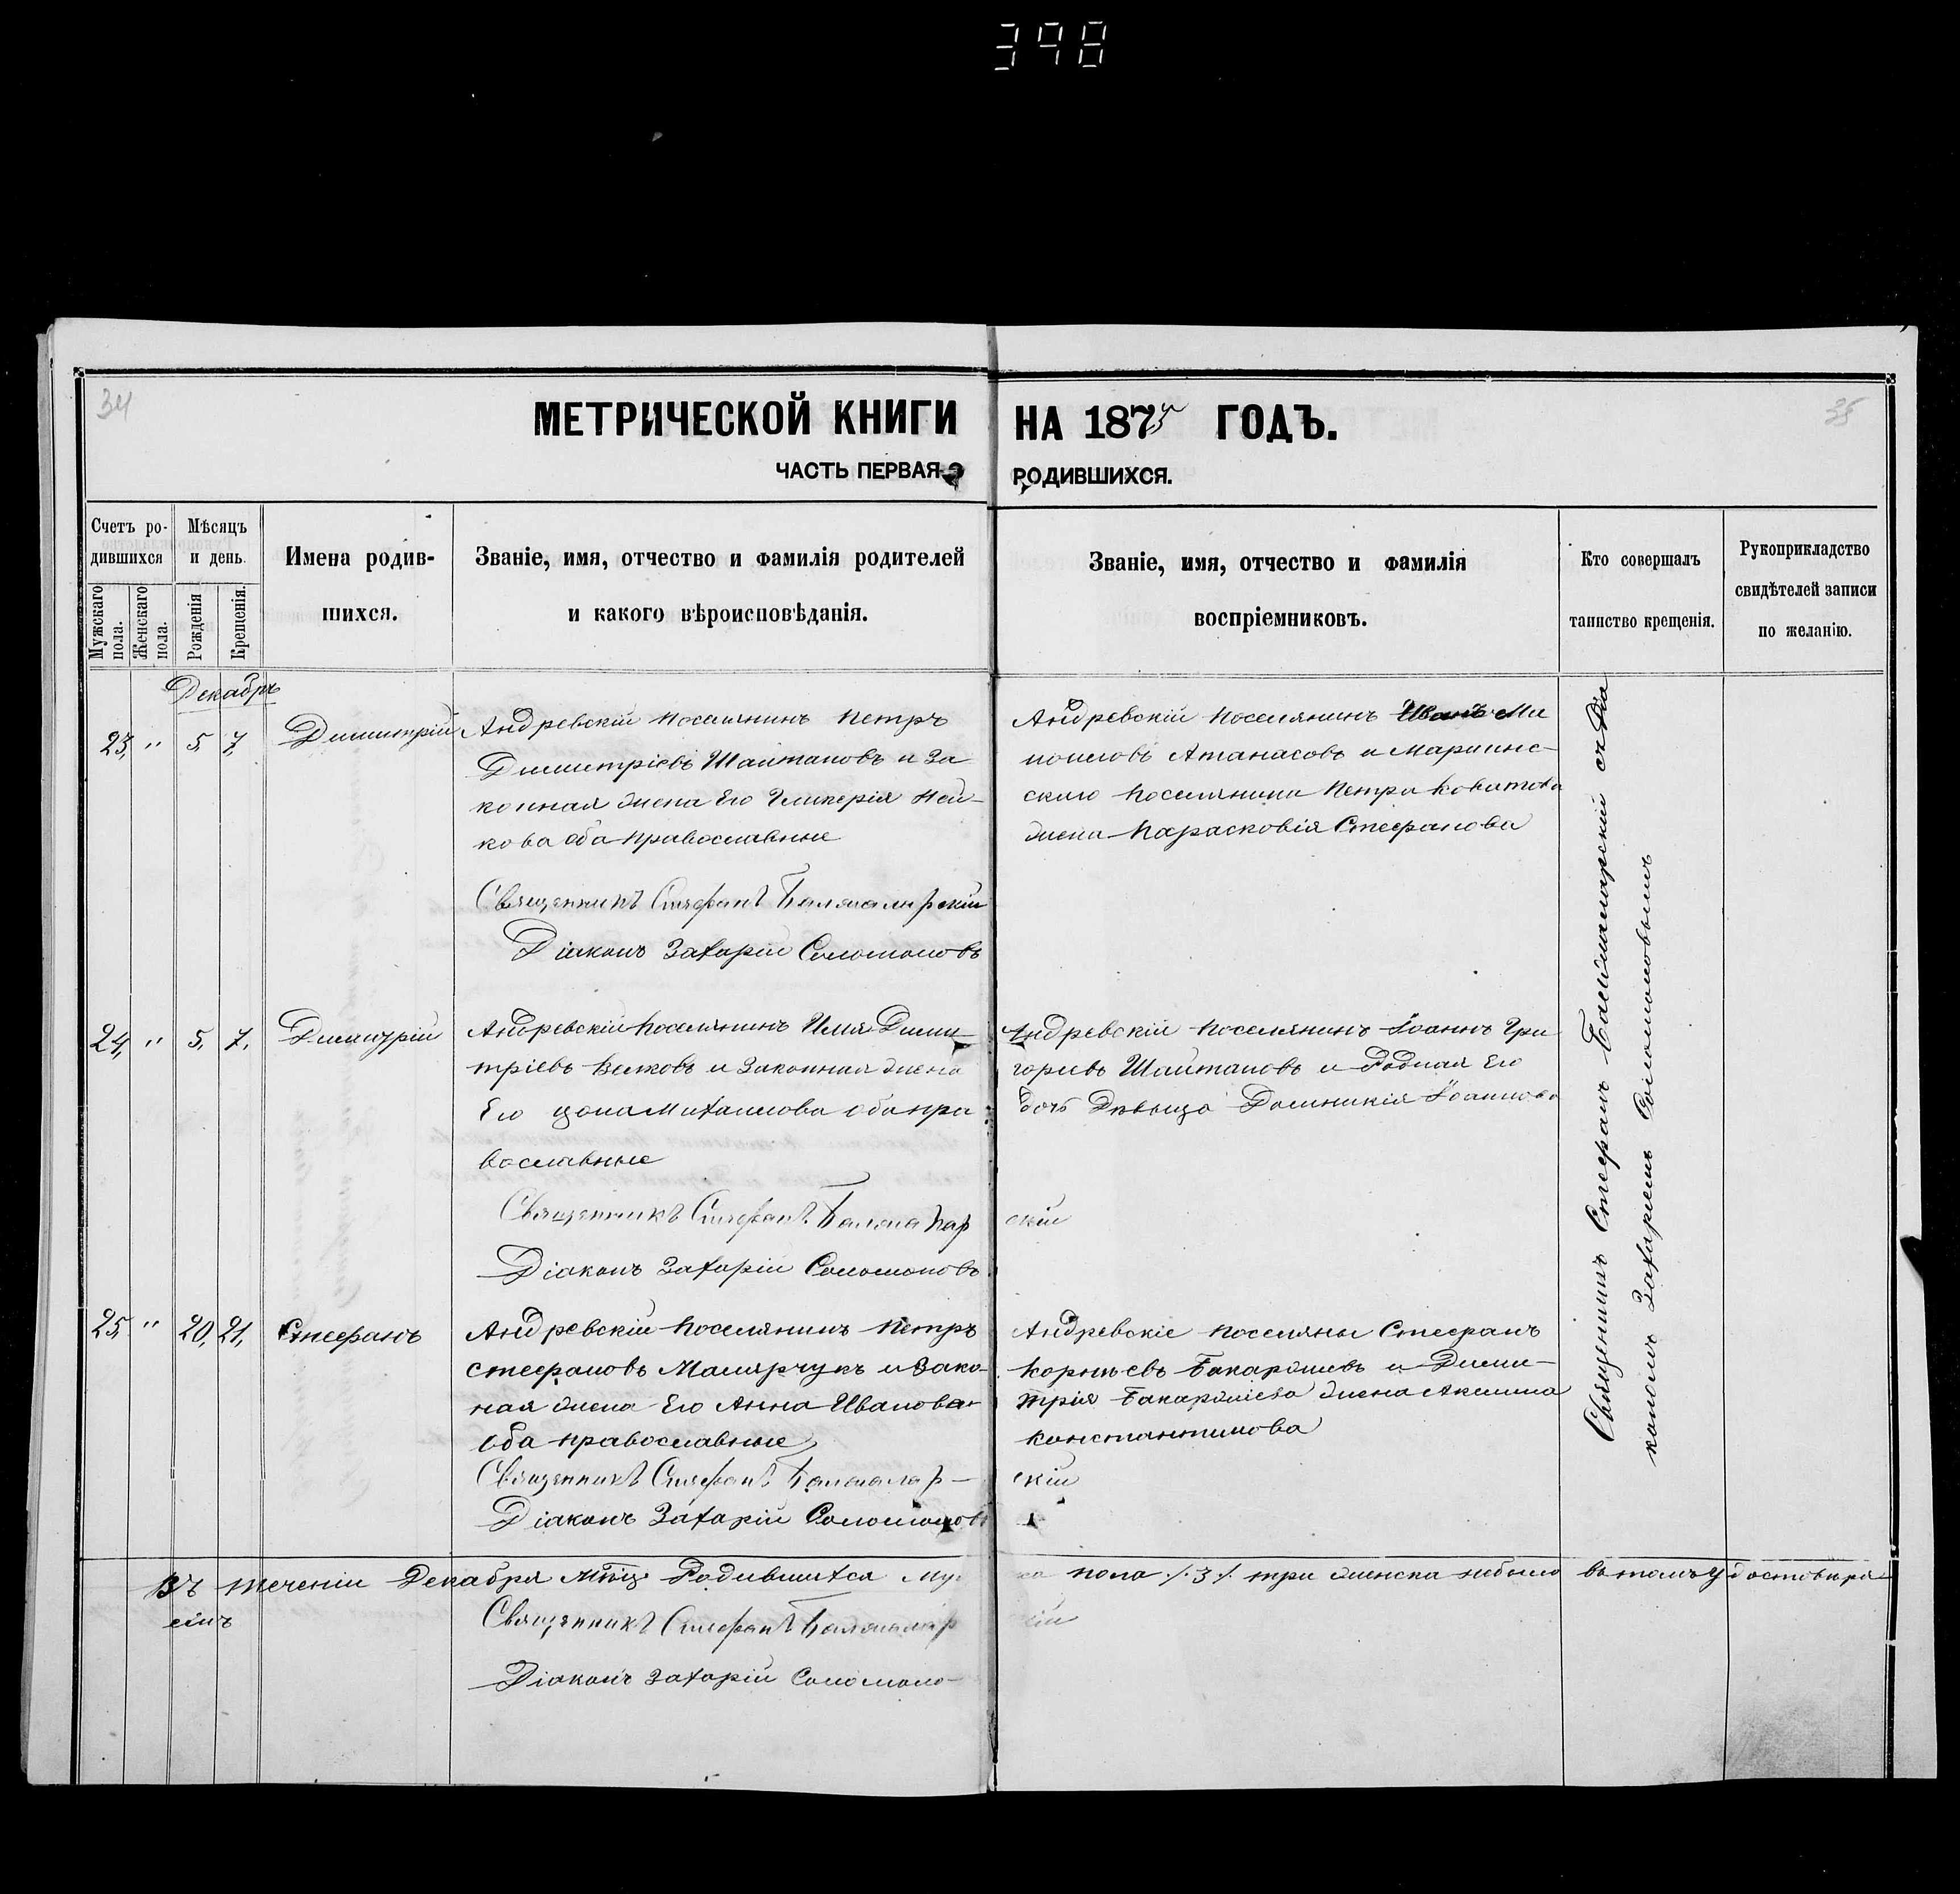 398
34
35
МЕТРИЧЕСКОЙ КНИГИ НА 1875 ГОДЪ.
ЧАСТЬ ПЕРВАЯ О РОДИВШИХСЯ.
Счетъ ро-
дившихся
Мужскаго пола.
Женскаго пола.
Мѣсяцъ
и день.
Рожденія
Крещенія.
Имена родив-
шихся.
Званіе, имя, отчество и фамилія родителей
и какого вѣроисповѣданія.
Званіе, имя, отчество и фамилія
воспріемниковъ.
Кто совершалъ
таинство крещенія.
Рукоприкладство
свидѣтелей записи
по желанію.
Декабрь
23, " 5 7, Димитрій
Андревскій поселянинъ Петръ
Димитріевъ Шайтановъ и За
конная жена Его Гликерія Ней-
кова оба православные
Священникъ Стефанъ
Діаконъ Захарій Соломоновъ
Андревскій поселянинъ Ми
Атанасовъ и Мариинс-
скаго поселянина Петра
жена Парасковія Стефанова
24, " 5, 7, Димитрій
Андревскій поселянинъ Илія Дими-
тріевъ Велковъ и Законная жена
Его Цона Михаилова оба пра
вославные
Священникъ Стефанъ
скій
Діаконъ Захарій Соломоновъ
Андревскій поселянинъ Іоаннъ Гри
горивъ Шайтановъ и Родная Его
дочь Дѣвица Домникія Іоаннова
25, " 20, 21, Стефанъ
Андревскій поселянинъ Петръ
Стефановъ Малярчукъ и Зако-
ная жена Его Анна Иванова
оба православные
Священникъ Стефанъ
скій
Діаконъ Захарій Соломоновъ
Андревскіе поселяны Стефанъ
Корніевъ и Дими-
трія жена Акилина
Константинова
Священникъ Стефанъ съ Діа
кономъ Захаріемъ Соломоновымъ
Въ теченіи Декабря мѣц Родившихся Му пола ./.3./. три женска небыло въ томъ удостовѣря
емъ
Священникъ Стефанъ
Діаконъ Захарій Соломоно